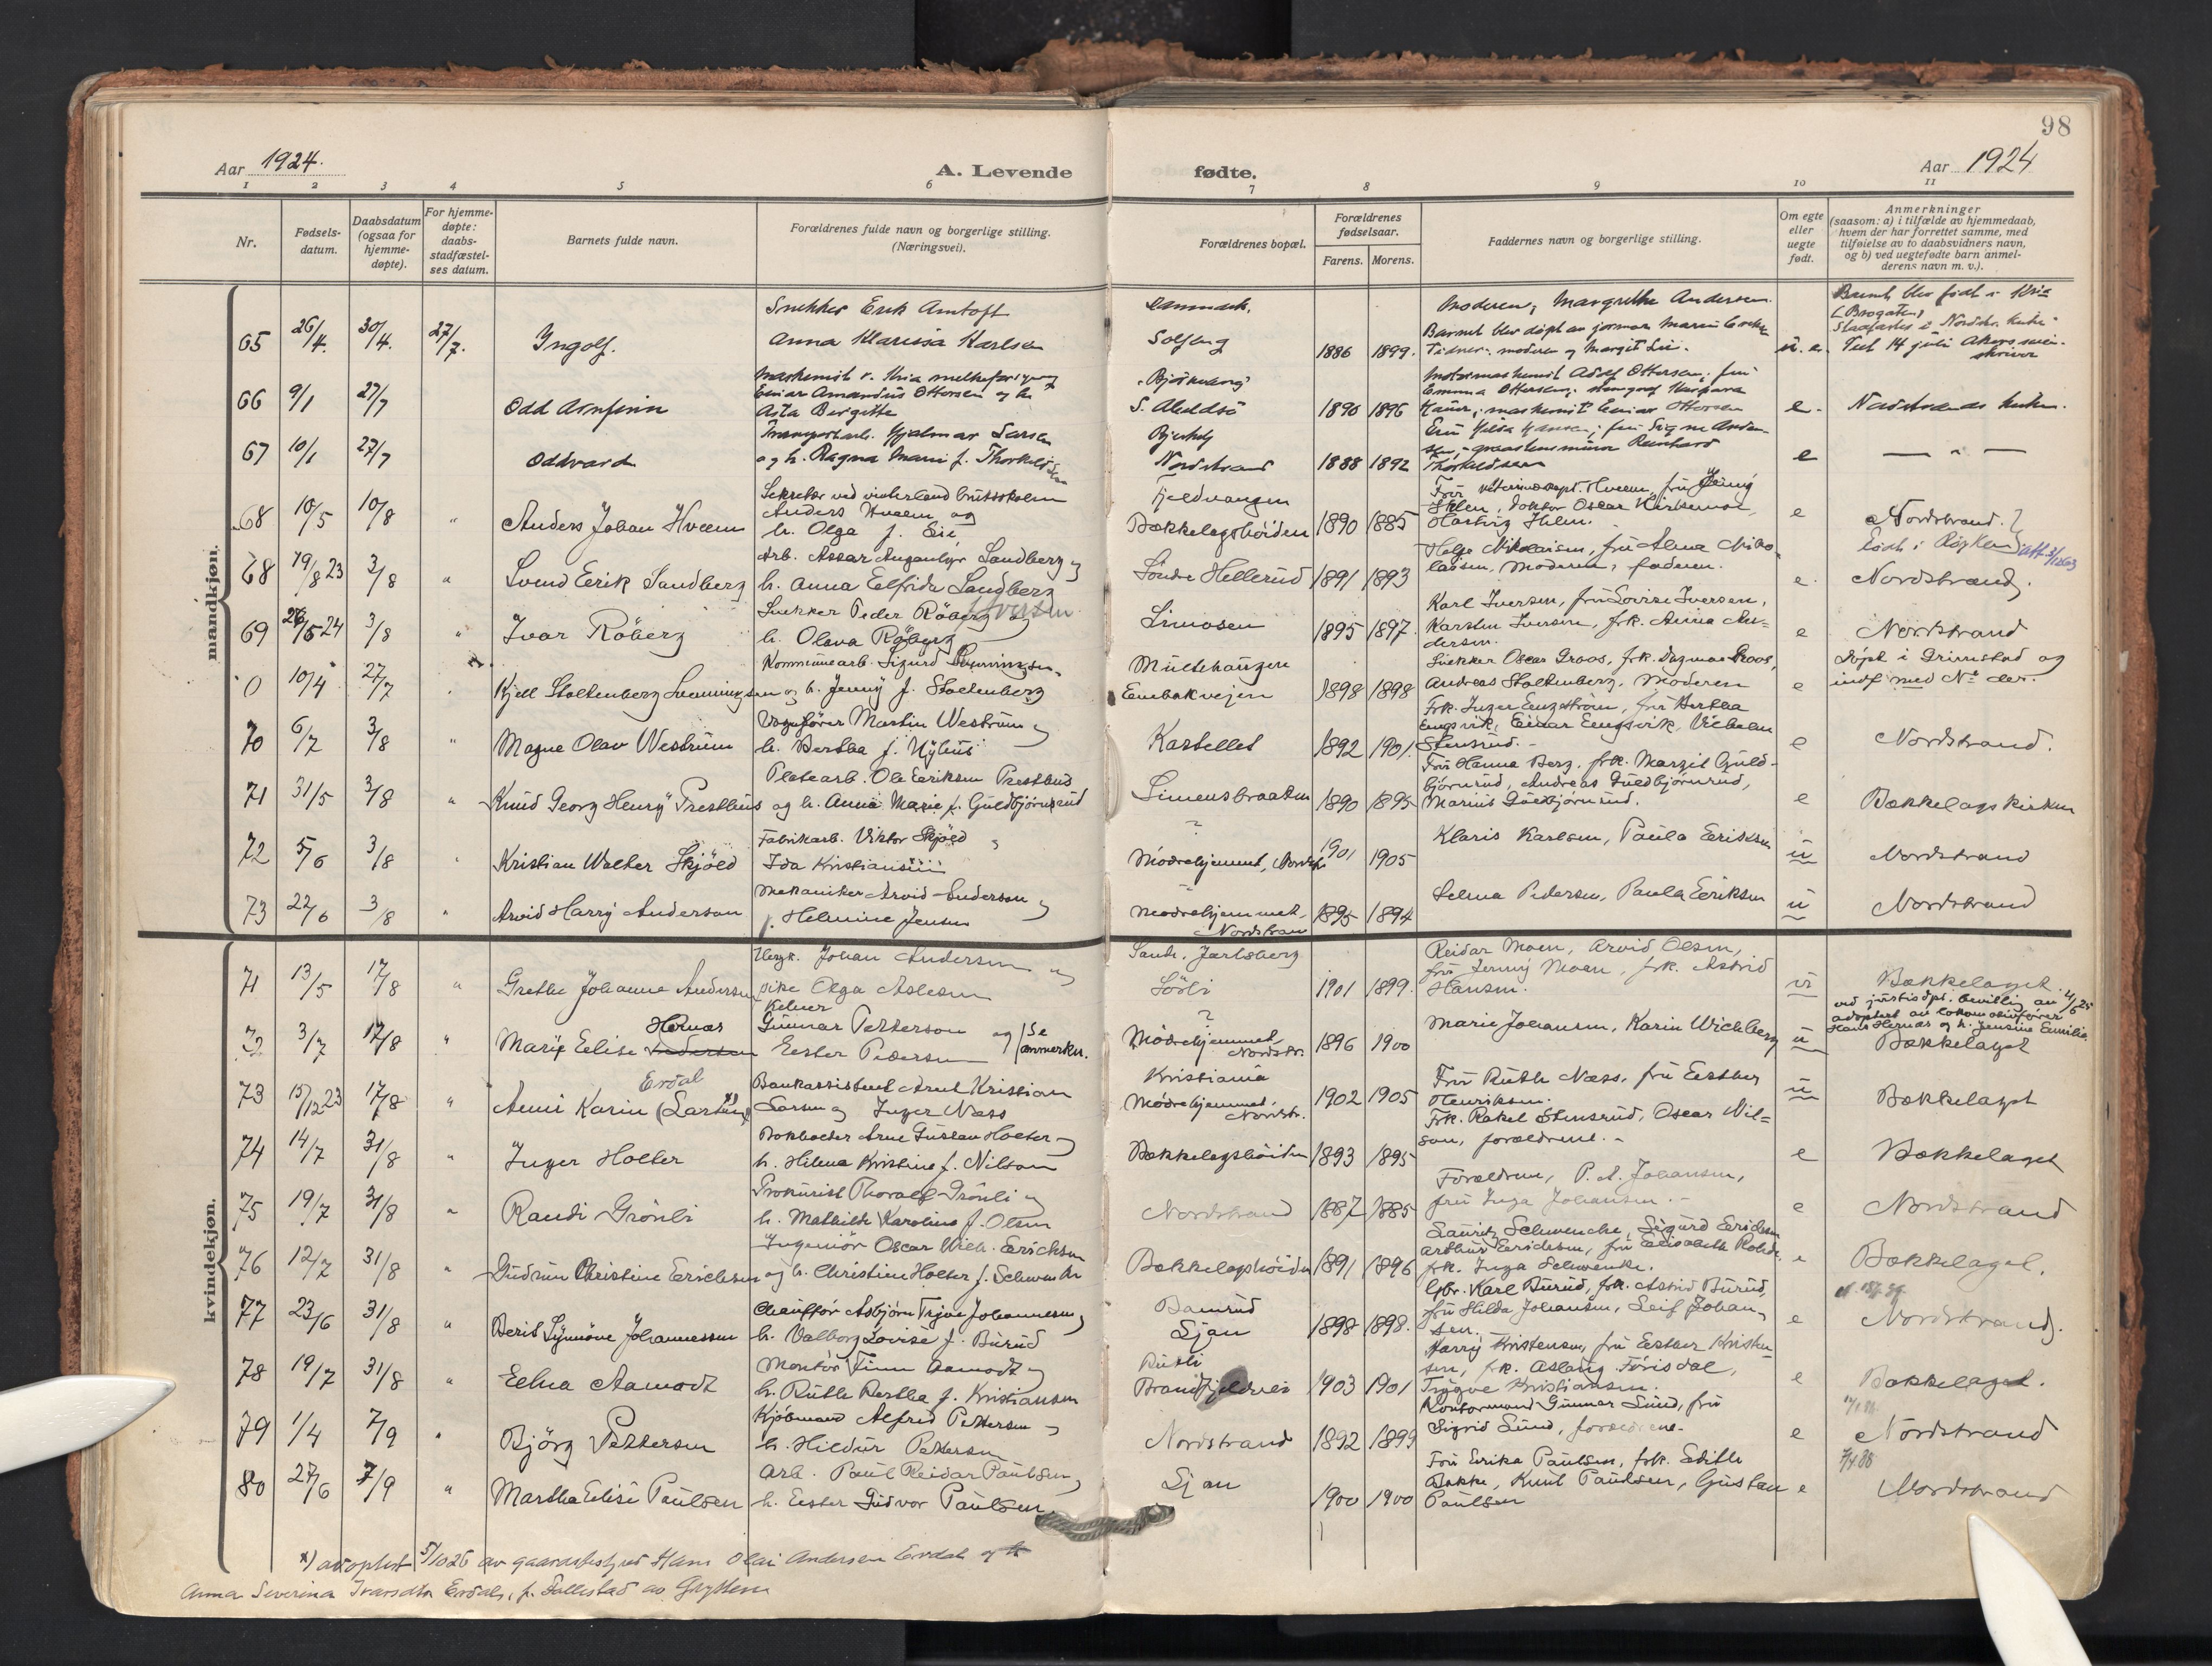 98
Aar 1924.
A. Levende
fødte.
Aar 1924
1 2 3 4 5 6 7 8 9 10 11
Nr.
Fødsels-
datum.
Daabsdatum
(ogsaa for
hjemme-
døpte).
For hjemme-
døpte:
daabs-
stadfæstel-
ses datum.
Barnets fulde navn.
Forældrenes fulde navn og borgerlige stilling.
(Næringsvei).
Forældrenes bopæl.
Forældrenes
fødselsaar.
Farens. Morens.
Faddernes navn og borgerlige stilling.
Om egte
eller
uegte
født.
Anmerkninger
(saasom: a) i tilfælde av hjemmedaab,
hvem der har forrettet samme, med
tilføielse av to daabsvidners navn,
og b) ved uegtefødte barn anmel-
derens navn m. v.).
mandkjøn.
Snekker Erik Amtoft Danmark. Moderen, Margrethe Andersen. Barnet blev født i Kria
65 26/4. 30/4. 27/7. Ingolf. Anna Klarissa Karlsen Solfeng 1886 1899. Barnet blev døpt av jormor Marie
moderen og Margit u. e.
Test 14 juli Akers soren-
skriver
Maskinist v. Kria
66 9/1 27/7 Odd Arnfinn Einar Amandus Ottersen og h. S. 1896 1896 Motormaskinist Adolf Ottersen, fru
Asta Birgitte Emma Ottersen, maskinist Einar Ottersen e. Nordstrands kirke.
67 10/1 27/7 Oddvard Transportarb. Hjalmar Larsen
og h. Ragna Marie f. Nordstrand 1888 1892 Thorkildsen e — " —
68 10/5 10/8 " Anders Johan Hveem Sekretær ved
Anders Hveem og
h. Olga f. Eie, Fjeldvangen
Bækkelagshöiden 1890 1885 fru Jenny
Ihlen, Doktor Oscar
Hartvig Ihlen. e Nordstrand.
Född i Röyken
68 19/8 23 3/8 " Svend Eerik Sandberg Arb. Assar Sandberg og
h. Anna Eelfrida Sandberg Søndre Hellerud 1891 1893 Helge Nikolaisen, fru Alma Niko-
laisen, Moderen, faderen. e. Nordstrand.
69 26/5 24 3/8 " Ivar Röberg Snekker Peder Röberg og Iversen
h. Olava Röberg Limosen 1895 1897. Karl Iversen, fru Lovise Iversen,
Karsten Iversen, frk. Anna An-
dersen. e Nordstrand
0 10/4 27/7 Kjell Stoltenberg Svenningsen Kommunearb. Sigurd Svenningsen
og h. Jenny f. Stoltenberg Multehaugen
Eembakveien 1898 1898 Snekker Oscar Groos, frk. Dagmar Groos,
Andreas Stoltenberg, Moderen e Döpt i Grimstad og
indf med Nº der.
70 6/7 3/8 " Magne Olav Westrum Vognfører Martin Westrum og
h. Bertha f. Nyhus Kastellet 1892 1901. Frk. Inger Engström, fru Hertha
Engsvik, Einar Engsvik, Vilhelm
Stensrud. - e Nordstrand.
71 31/5 3/8 " Knud Georg Henry Presthus Platearb. Ole Eeriksen Presthus
og h. Anna Marie f. Guldbjørnsrud Simensbraaten 1890 1895 Fru Hanna Berg, frk. Margit Guld-
bjørnrud, Andreas Guldbjørnrud,
Marius Guldbjørnrud. e Bækkelagskirken
72 5/6 3/8 " Kristian Walter Skjöld Fabrikarb. Viktor Skjöld og
Ida Kristiansen ?
Mødrehjemmet, Nordstr. 1901 1905 Klaris Karlsen, Paula Eeriksen u Nordstrand
73 22/6 3/8 " Arvid Harry Anderson Mekaniker Arvid Anderson og
p. Helmine Jensen Mødrehjemmet,
Nordstran 1895 1894 Selma Pedersen, Paula Eeriksen u Nordstrand
kvindekjøn.
71 13/5 17/8 " Grethe Johanne Andersen Johan Andersen og
pike Olga Aslesen Sande, Jarlsberg
Sörli 1901 1899. Reidar Moen, Arvid Olsen,
fru Jenny Moen, frk. Astrid
Hansen. u Bækkelaget.
3/7 17/8 " Marie Eelise Pedersen Hernæs Kelner
Gunnar Petterson og (se
Eester Pedersen anmerkn. ?
Mödrehjemmet,
Nordstr. 1896 1900 Marie Johansen, Karin Wichberg u ved justisdpt. bevilling av 4/6 25
adoptert av lokomotivfører
Hans Hernæs og h. Jensine Emilie.
Bækkelaget
73 15/12 23 17/8 " Anni Karin (Larsen) x) Erdal Bankassistent Arnt Kristian
Larsen og Inger Næss Kristiania
Mødrehjemmet,
Nordstr. 1902 1905 Fru Ruth Næss, fru Eesther
Henriksen. u Bækkelaget
74 14/7 31/8 " Inger Holter Bokholder Arne Gustav Holter og
h. Helena Kristine f. Nilson Bækkelagshöiden 1893 1895 Frk. Rakel Stensrud, Oscar Nil-
son, forældrene. - e Bækkelaget
75 19/7 31/8 " Randi Grönli Prokurist Thoralf Grönli og
h. Mathilde Karoline f. Olsen Nordstrand 1887 1885 Forældrene, P. A. Johansen,
fru Inga Johansen. - e Nordstrand
76 12/7 31/8 " Gudrun Christine Eerichsen Ingeniør Oscar Wilh. Eerichsen
og h. Christine Holter f. Schwenke Bækkelagshöiden 1891 1896 Lauritz Schwencke, Sigurd Eerichsen
Arthur Eerichsen, fru Eelisabeth Rohde.
frk. Inga Schwenke. e Bækkelaget.
77 23/6 31/8 " Berit Synnöve Johannessen Chauffør Asbjørn Trygve Johannessen og
h. Valborg Lovise f. Burud
Ljan 1898 1898. Gbr. Karl Burud, frk. Astrid Burud,
fru Hilda Johansen, Leif Johan-
sen. e Nordstrand.
78 19/7 31/8 " Eelna Aamodt Montör Finn Aamodt og
h. Ruth Bertha f. Kristiansen Rutli
Brandfjeldvei 1903 1901 Harry Kristensen, fru Eester Kristen-
sen, frk. Aslaug Förisdal,
Trygve Kristiansen. e Bækkelaget.
79 1/4 7/9 " Björg Pettersen Kjöbmand Alfred Pettersen og
h. Hildur Pettersen Nordstrand 1892 1899 Kontormand Gunnar Lund, fru
Sigrid Lund, forældrene. e Nordstrand
80 27/6 7/9 " Martha Eelise Paulsen Arb. Paul Reidar Paulsen og
h. Eester Gudvor Paulsen Ljan 1900 1900 Fru Erika Paulsen, frk. Edith
Bakke, Knut Paulsen, Gustav
Paulsen e Nordstrand
x) adoptert 5/10 26 av gaardbestyrer Hans Olai Andersen Erdal og h
Anna Severina Ivarsdtr Erdal, f. Dallestad av Gryten